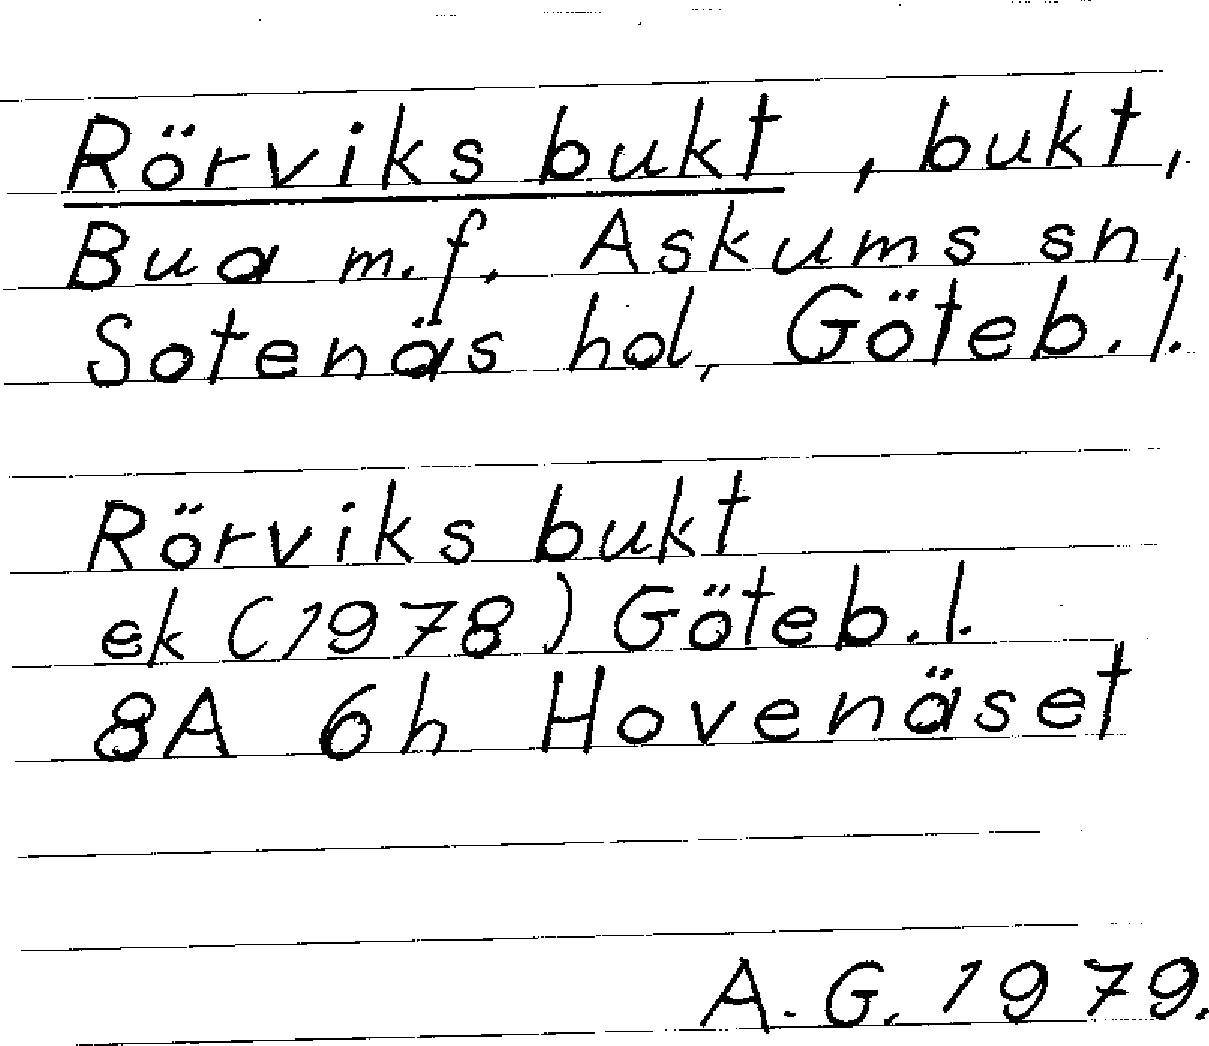 Rörviks bukt, bukt,
Bua m.f. Askums sn,
Sotenäs hd, Göteb. l.
Rörviks bukt
ek (1978) Göteb. l.
8A 6h Hovenäset
A. G. 1979.